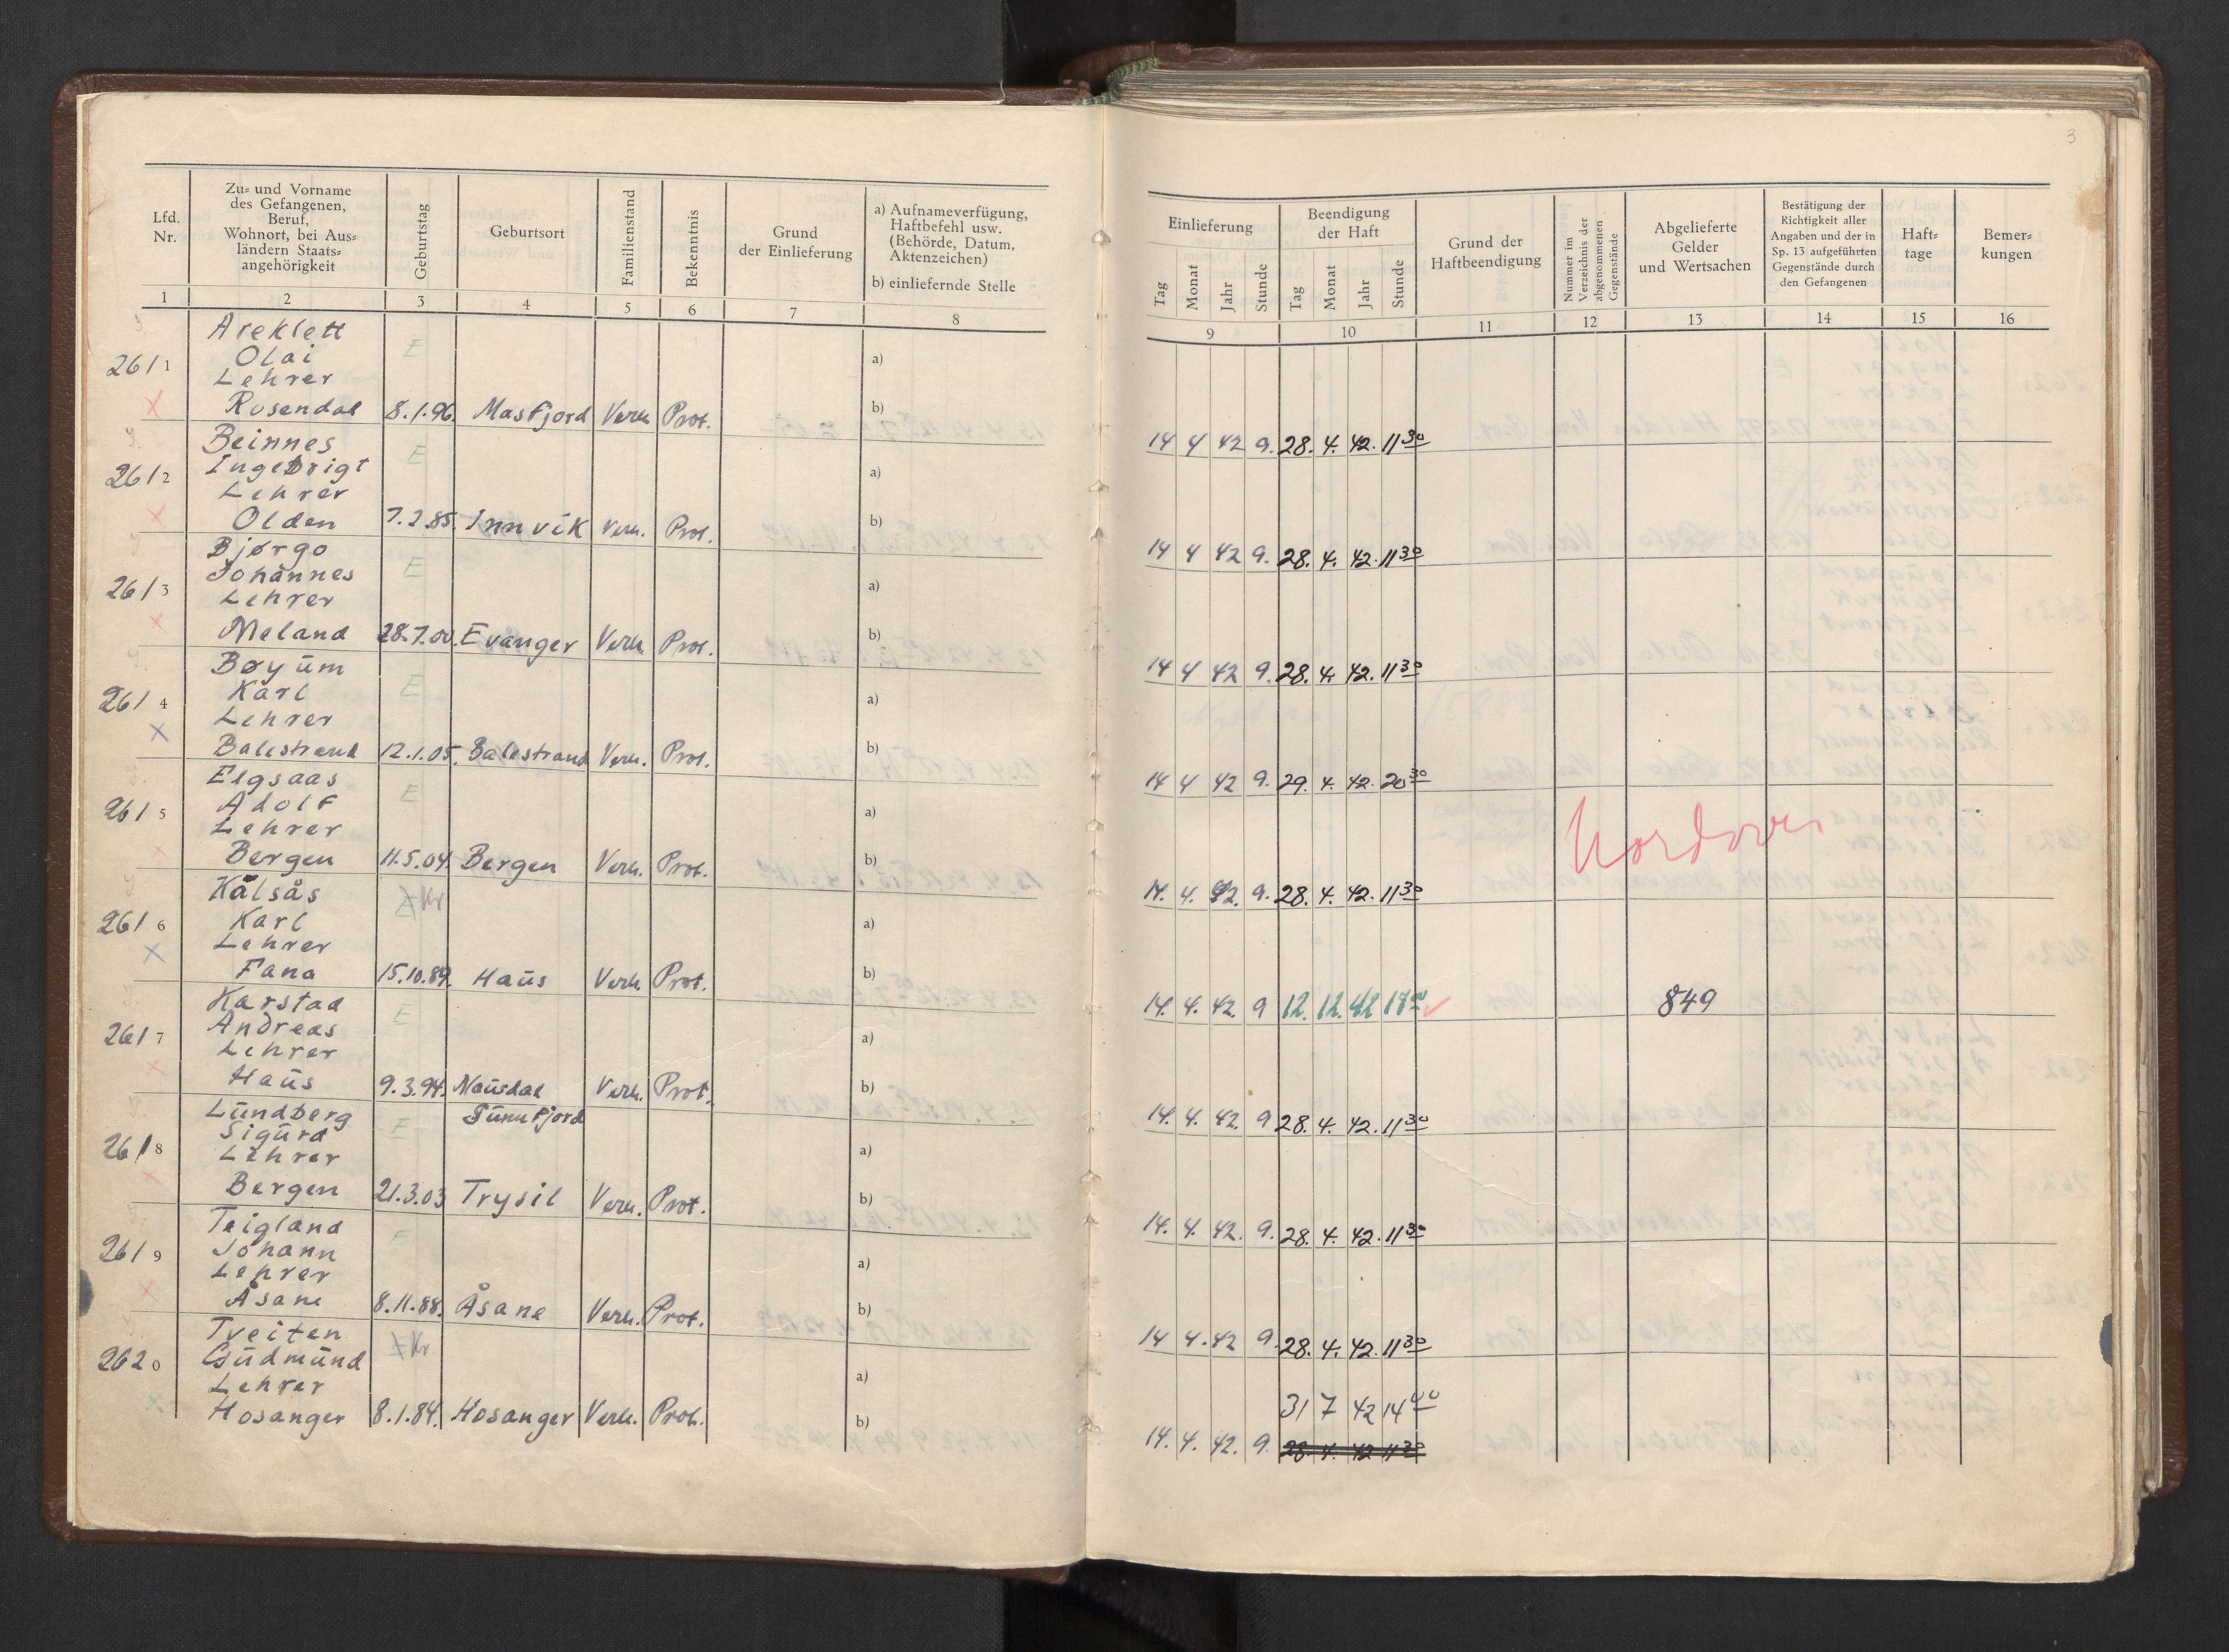 3
Lfd. Nr.
Zu- und Vorname
des Gefangenen,
Beruf,
Wohnort, bei Aus-
ländern Staats-
angehörigkeit
Geburtstag
Geburtsort
Familienstand
Bekenntnis
Grund
der Einlieferung
a) Aufnameverfügung,
Haftbefehl usw.
(Behörde, Datum,
Aktenzeichen)
b) einliefernde Stelle
Einlieferung
Tag Monat Jahr Stunde
Beendigung
der Haft
Tag Monat Jahr Stunde
Grund der
Haftbeendigung
Nummer im
Verzeichnis der
abgenommenen
Gegenstände
Abgelieferte
Gelder
und Wertsachen
Bestätigung der
Richtigkeit aller
Angaben und der in
Sp. 13 aufgeführten
Gegenstände durch
den Gefangenen
Haft-
tage
Bemer-
kungen
1 2 3 4 5 6 7 8 9 10 11 12 13 14 15 16
Areklett
E
26/1 Olai a)
Lehrer
x Rosendal 8.1.96. Masfjord Verh. Prot. b) 14 4 42 9. 28. 4. 42. 11 30
Beinnes
E
26/2 Ingebrigt a)
Lehrer
x Olden 7.2.85. Innvik Verh. Prot. b) 14 4 42 9. 28. 4. 42. 11 30
Bjørgo
E
26/3 Johannes a)
Lehrer
x Meland 28.7.00. Evanger Verh. Prot. b) 14 4 42 9. 28. 4. 42. 11 30
Bøyūm
E
26/4 Karl a)
Lehrer
x Balestrand 12.1.05. Balestrand Verh. Prot. b) 14 4 42 9. 29. 4. 42. 20 30
Elgsaas
E
26/5 Adolf a)
Lehrer
x Bergen 11.5.04. Bergen Verh. Prot. b) 14. 4. 42. 9. 28. 4. 42. 11 30
Kålsås
E Kr
26/6 Karl a)
Lehrer
x Fana 15.10.89. Haūs Verh. Prot. b) 14. 4. 42. 9 12. 12. 42 18 849
Karstad
E
26/7 Andreas a)
Lehrer
x Haūs 9.3.94. Naūsdal Verh. Prot. b) 14. 4. 42. 9 28. 4. 42. 11 30
Sūnnfjord
Lūndberg
E
26/8 Sigūrd a)
Lehrer
x Bergen 21.3.03 Trysil Verh. Prot. b) 14. 4. 42. 9. 28. 4. 42. 11 30
Teigland
E
26/9 Johann a)
Lehrer
x Åsane 8.11.88. Åsane Verh. Prot. b) 14 4. 42 9. 28. 4. 42. 11 30
Tveiten
E Kr
2620 Gūdmūnd a)
Lehrer
31 7 42 14 40
x Hosanger 8.1.84. Hosanger Verh. Prot. b) 14. 4. 42. 9. 28. 4. 42 11 30